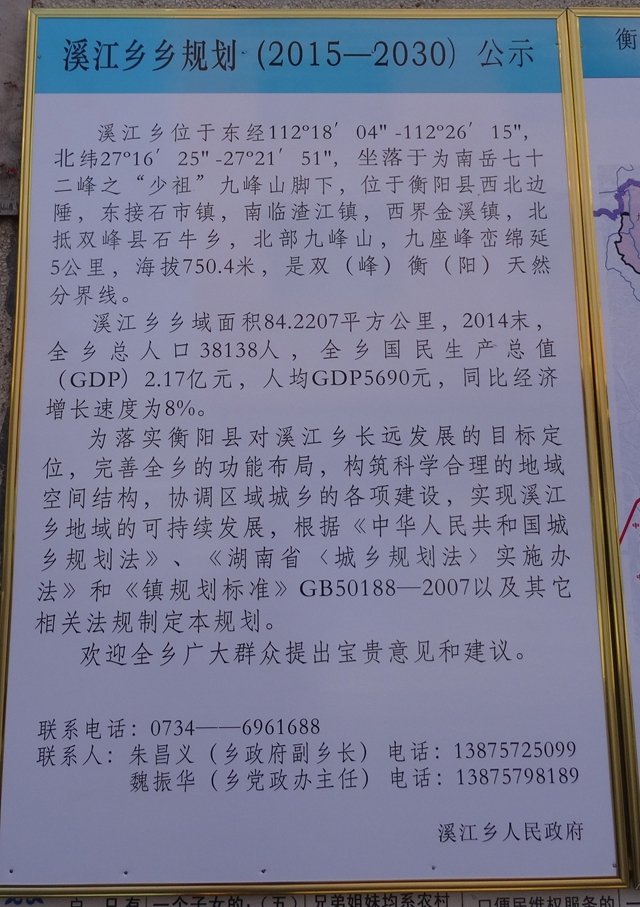 溪江乡乡规划（2015—2030）公示
溪江乡位于东经112º18′04″-112º26′15″，
北纬27º16′25″-27º21′51″，坐落于为南岳七十
二峰之“少祖”九峰山脚下，位于衡阳县西北边
陲，东接石市镇，南临渣江镇，西界金溪镇，北
抵双峰县石牛乡，北部九峰山，九座峰峦绵延
5公里，海拔750.4米，是双（峰）衡（阳）天然
分界线。
溪江乡乡域面积84.2207平方公里，2014末，
全乡总人口38138人，全乡国民生产总值
（GDP）2.17亿元，人均GDP5690元，同比经济
增长速度为8%。
为落实衡阳县对溪江乡长远发展的目标定
位，完善全乡的功能布局，构筑科学合理的地域
空间结构，协调区域城乡的各项建设，实现溪江
乡地域的可持续发展，根据《中华人民共和国城
乡规划法》、《湖南省〈城乡规划法〉实施办
法》和《镇规划标准》GB50188—2007以及其它
相关法规制定本规划。
欢迎全乡广大群众提出宝贵意见和建议。
联系电话：0734——6961688
联系人：朱昌义（乡政府副乡长） 电话：13875725099
魏振华（乡党政办主任） 电话：13875798189
溪江乡人民政府
衡
一个子女的；（五）
兄弟姐妹均系农村
口便民维权服务的